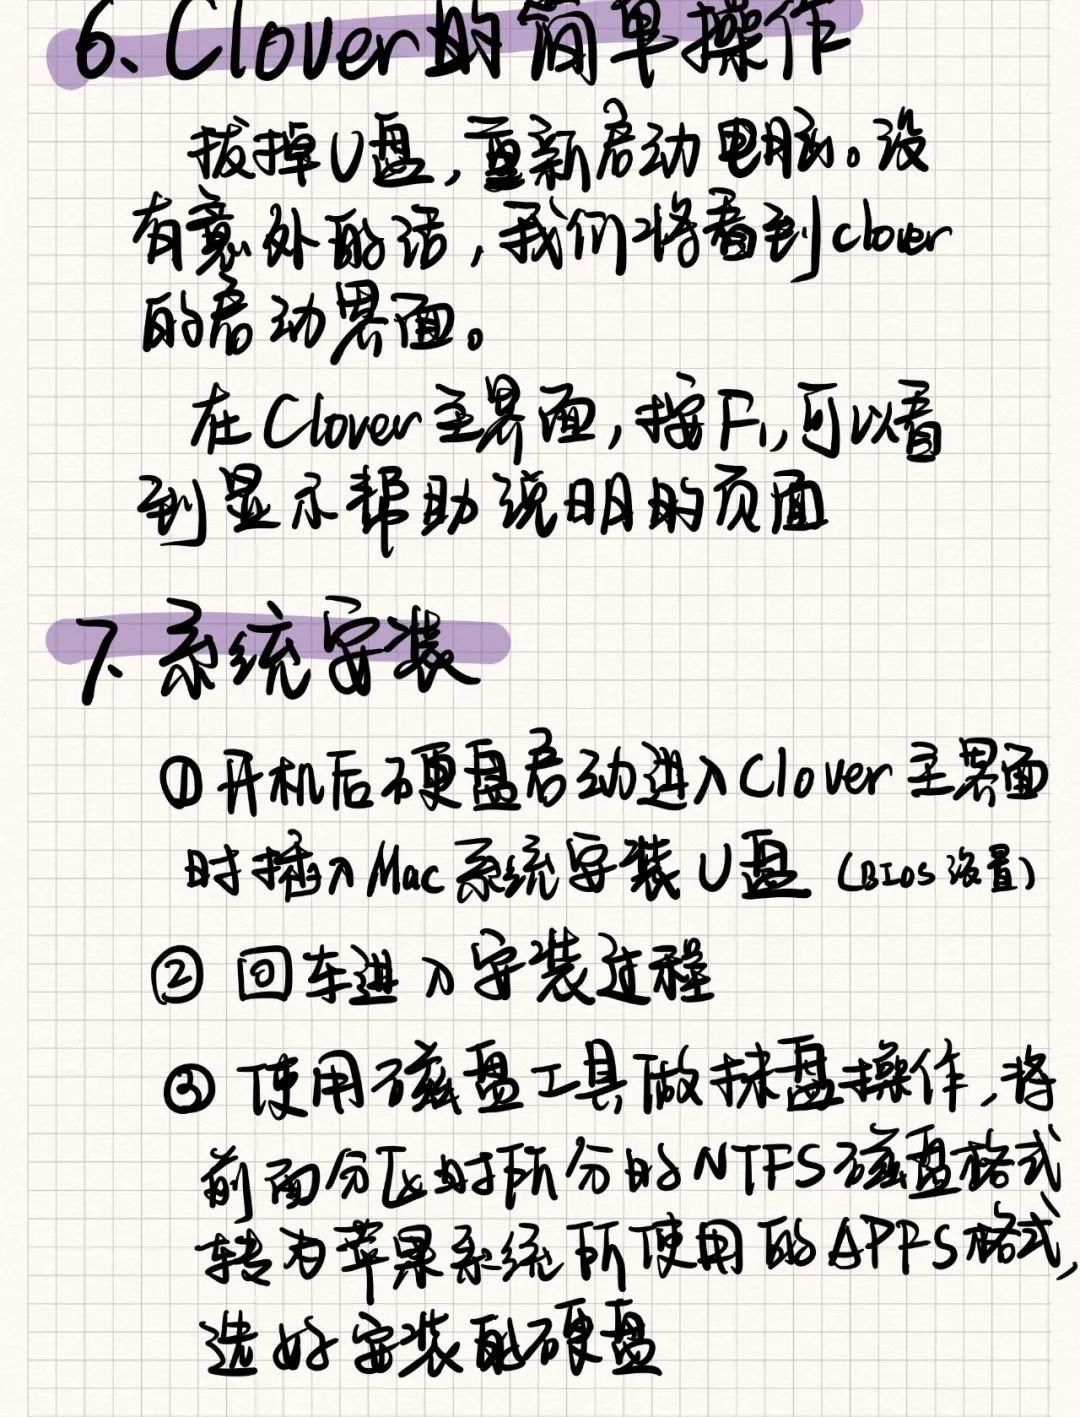 6、Clover的简单操作
拔掉U盘，重新启动电脑。没
有意外的话，我们将看到clover
的启动界面。
在Clover主界面，按F1，可以看
到显示帮助说明的页面
7、系统安装
①开机后硬盘启动进入Clover主界面
时插入Mac系统安装U盘（BIOS设置）
②回车进入安装过程
③使用磁盘工具做抹盘操作，将
前面分区时所分的NTFS磁盘格式
转为苹果系统所使用的APFS格式，
选好安装的硬盘